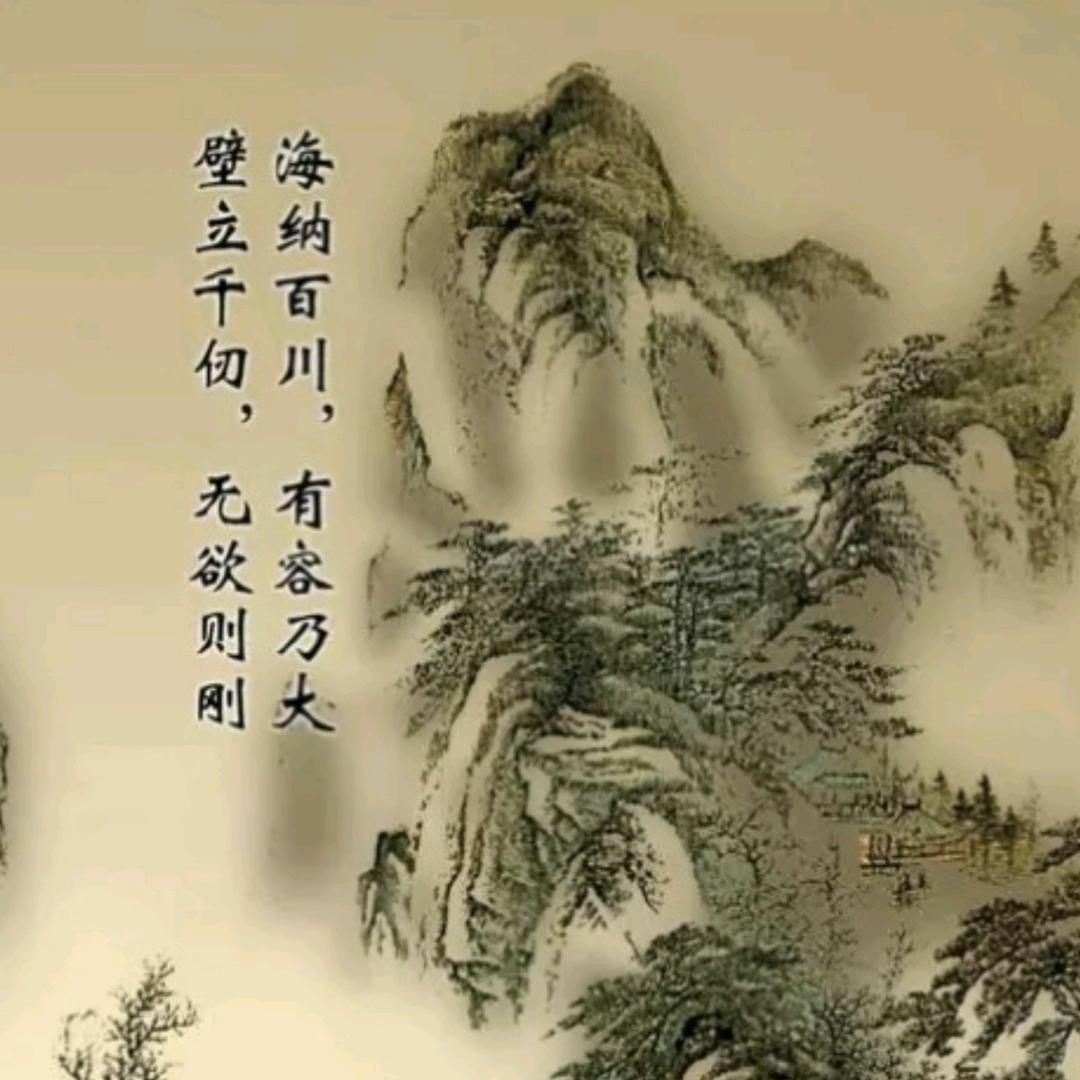 海纳百川，有容乃大
壁立千仞，无欲则刚